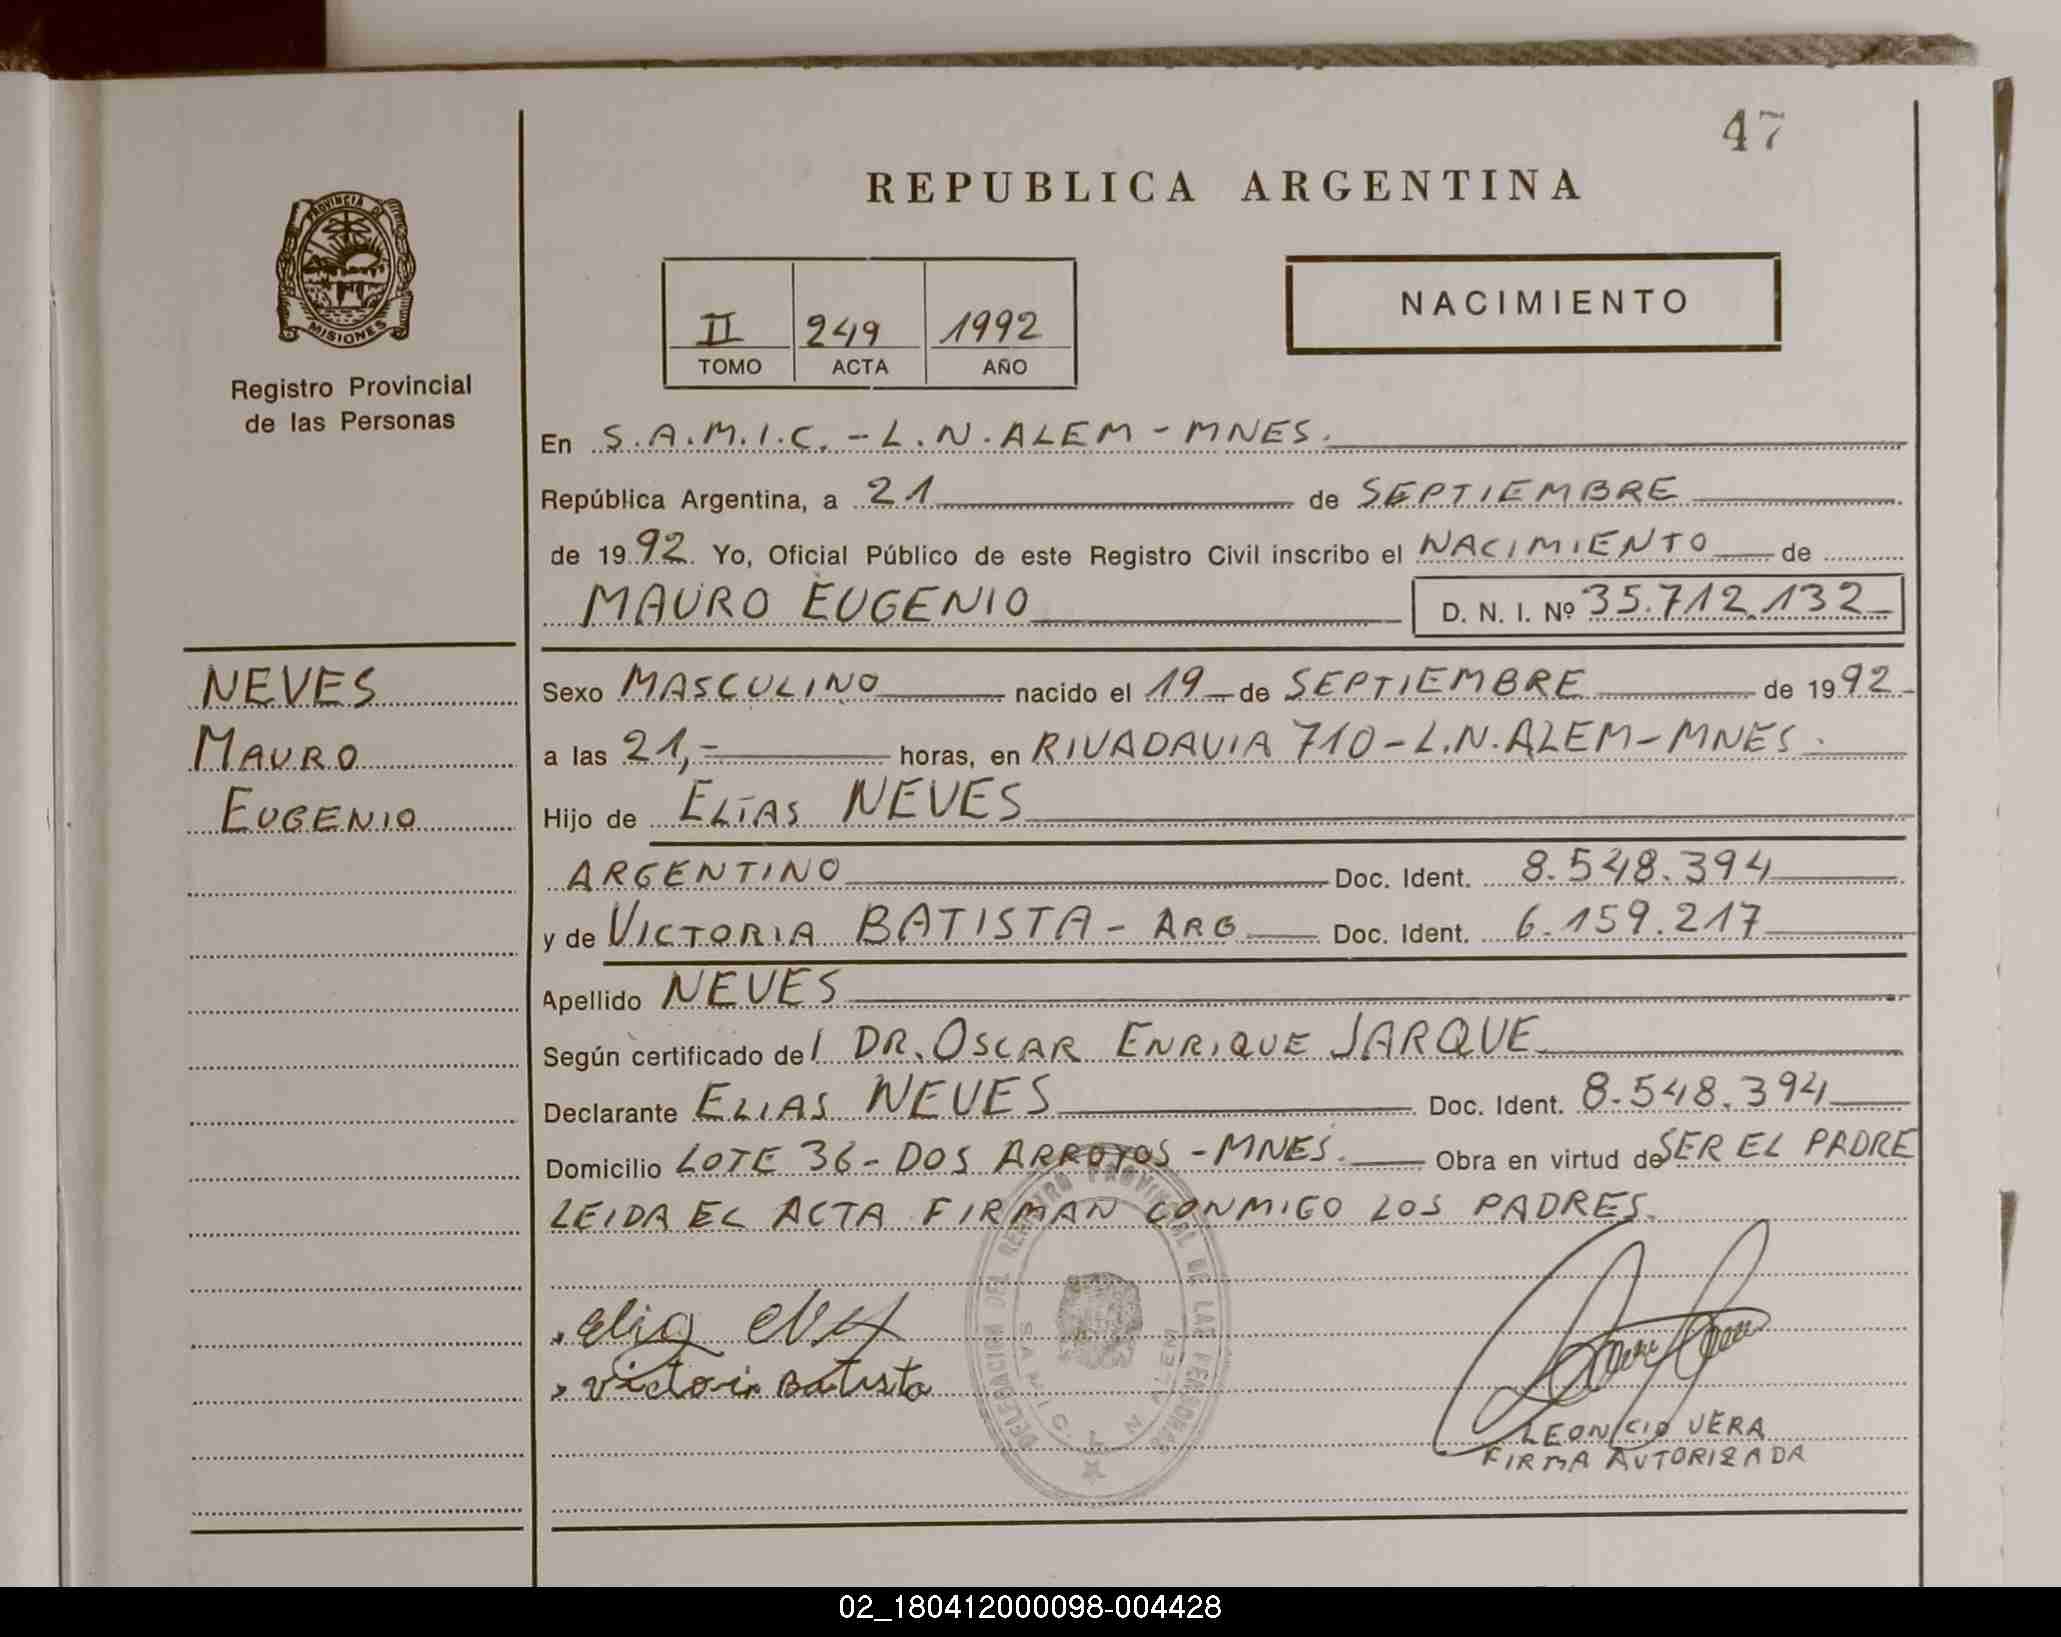 47
REPUBLICA ARGENTINA
PROVINCIA DE
MISIONES
Registro Provincial
de las Personas
II 249 1992
TOMO ACTA AÑO
NACIMIENTO
En S.A.M.I.C. - L.N. ALEM - MNES.
República Argentina, a 21 de SEPTIEMBRE
de 1992. Yo, Oficial Público de este Registro Civil inscribo el NACIMIENTO de
MAURO EUGENIO D. N. I. Nº 35.712.132
NEVES
MAURO
EUGENIO
Sexo MASCULINO nacido el 19 de SEPTIEMBRE de 1992
a las 21,= horas, en RIVADAVIA 710 - L.N. ALEM - MNES.
Hijo de ELÍAS NEVES
ARGENTINO Doc. Ident. 8.548.394
y de VICTORIA BATISTA - ARG Doc. Ident. 6.159.217
Apellido NEVES
Según certificado del DR. OSCAR ENRIQUE JARQUE
Declarante ELIAS NEVES Doc. Ident. 8.548.394
Domicilio LOTE 36 - DOS ARROYOS - MNES. Obra en virtud de SER EL PADRE
LEIDA EL ACTA FIRMAN CONMIGO LOS PADRES.
DELEGACION DEL REGISTRO PROVINCIAL DE LAS PERSONAS
S.A.M.I.C. L. N. ALEM
victoria Batista
LEONICIO VERA
FIRMA AUTORIZADA
02_180412000098-004428